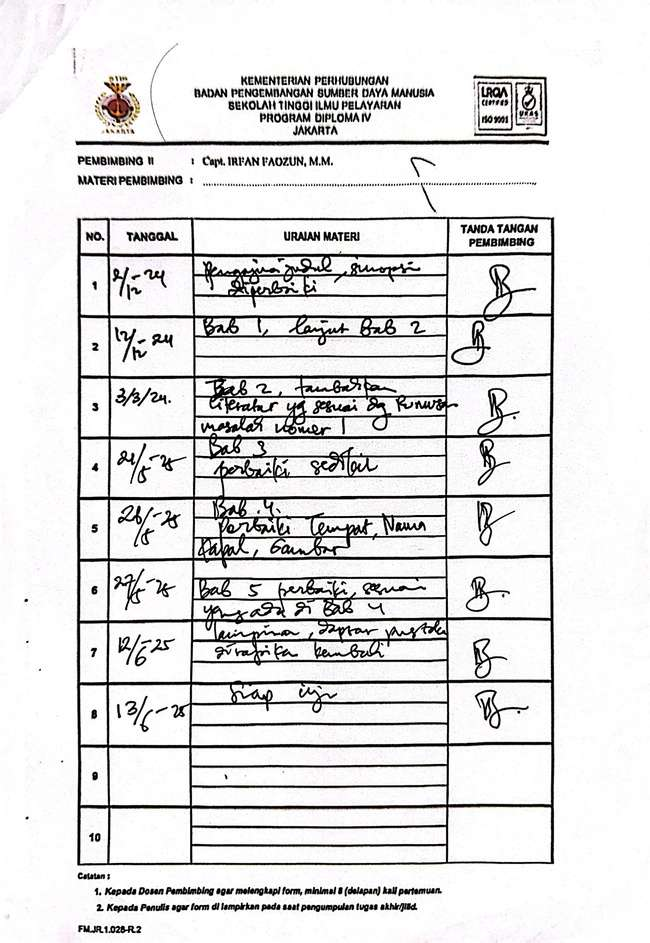 KEMENTERIAN PERHUBUNGAN
BADAN PENGEMBANGAN SUMBER DAYA MANUSIA
SEKOLAH TINGGI ILMU PELAYARAN
PROGRAM DIPLOMA IV
JAKARTA
JAKARTA
LRQA
CERTIFIED
ISO 9001
UKAS
PEMBIMBING II : Capt. IRFAN FAOZUN, M.M.
MATERI PEMBIMBING :
NO. TANGGAL URAIAN MATERI TANDA TANGAN PEMBIMBING
1 2/12-24 Pengajuan judul, sinopsi
diperbaiki
2 12/12-24 Bab 1, lanjut Bab 2
3 3/3/24. Bab 2, tambahkan
literatur yg sesuai dg Rumusan
masalah nomer 1
4 21/5-25 Bab 3
perbaiki sedikit
5 26/5-25 Bab 4.
Perbaiki Tempat, Nama
Kapal, Gambar
6 27/5-25 Bab 5 perbaiki, sesuai
yang ada di Bab 4
7 12/6-25 lampiran, daptar pustaka
dirapika kembali
8 13/6-25 Siap uji
9
10
Catatan :
1. Kepada Dosen Pembimbing agar melengkapi form, minimal 8 (delapan) kali pertemuan.
2. Kepada Penulis agar form di lampirkan pada saat pengumpulan tugas akhir/jilid.
FM.JR.1.028-R.2